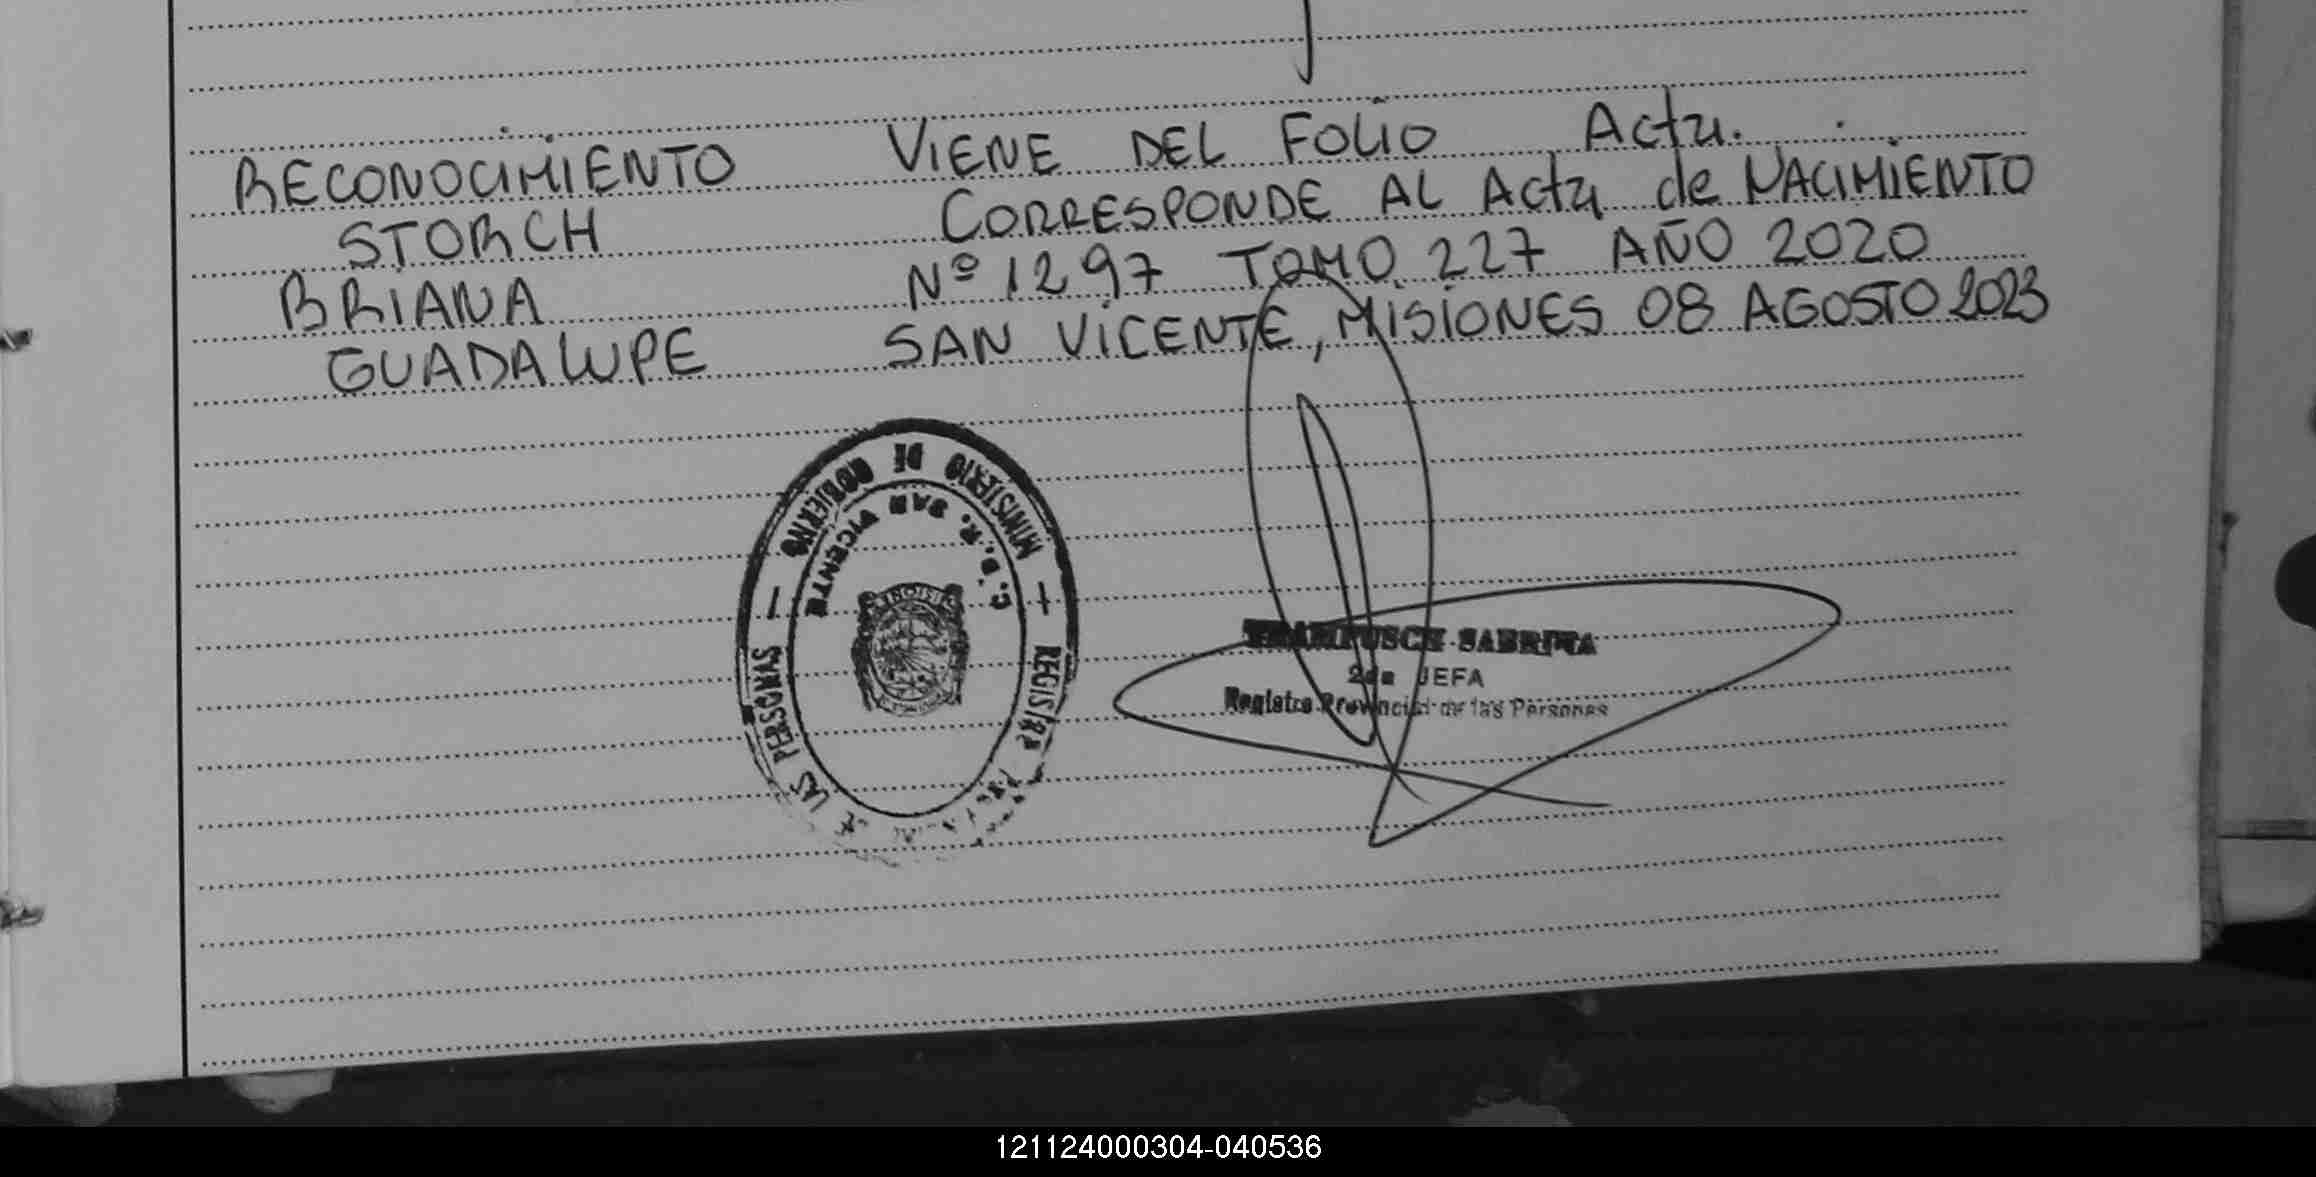 RECONOCIMIENTO
STORCH
BRIANA
GUADALUPE
VIENE DEL FOLIO Acta.
CORRESPONDE AL Acta de NACIMIENTO
Nº 1297 TOMO 227 AÑO 2020
SAN VICENTE, MISIONES 08 AGOSTO 2023
MINISTERIO DE GOBIERNO
C.D.R. SAN VICENTE
REGISTRO
LAS PERSONAS
SABRINA
2da JEFA
Registro Provincial de las Personas
121124000304-040536